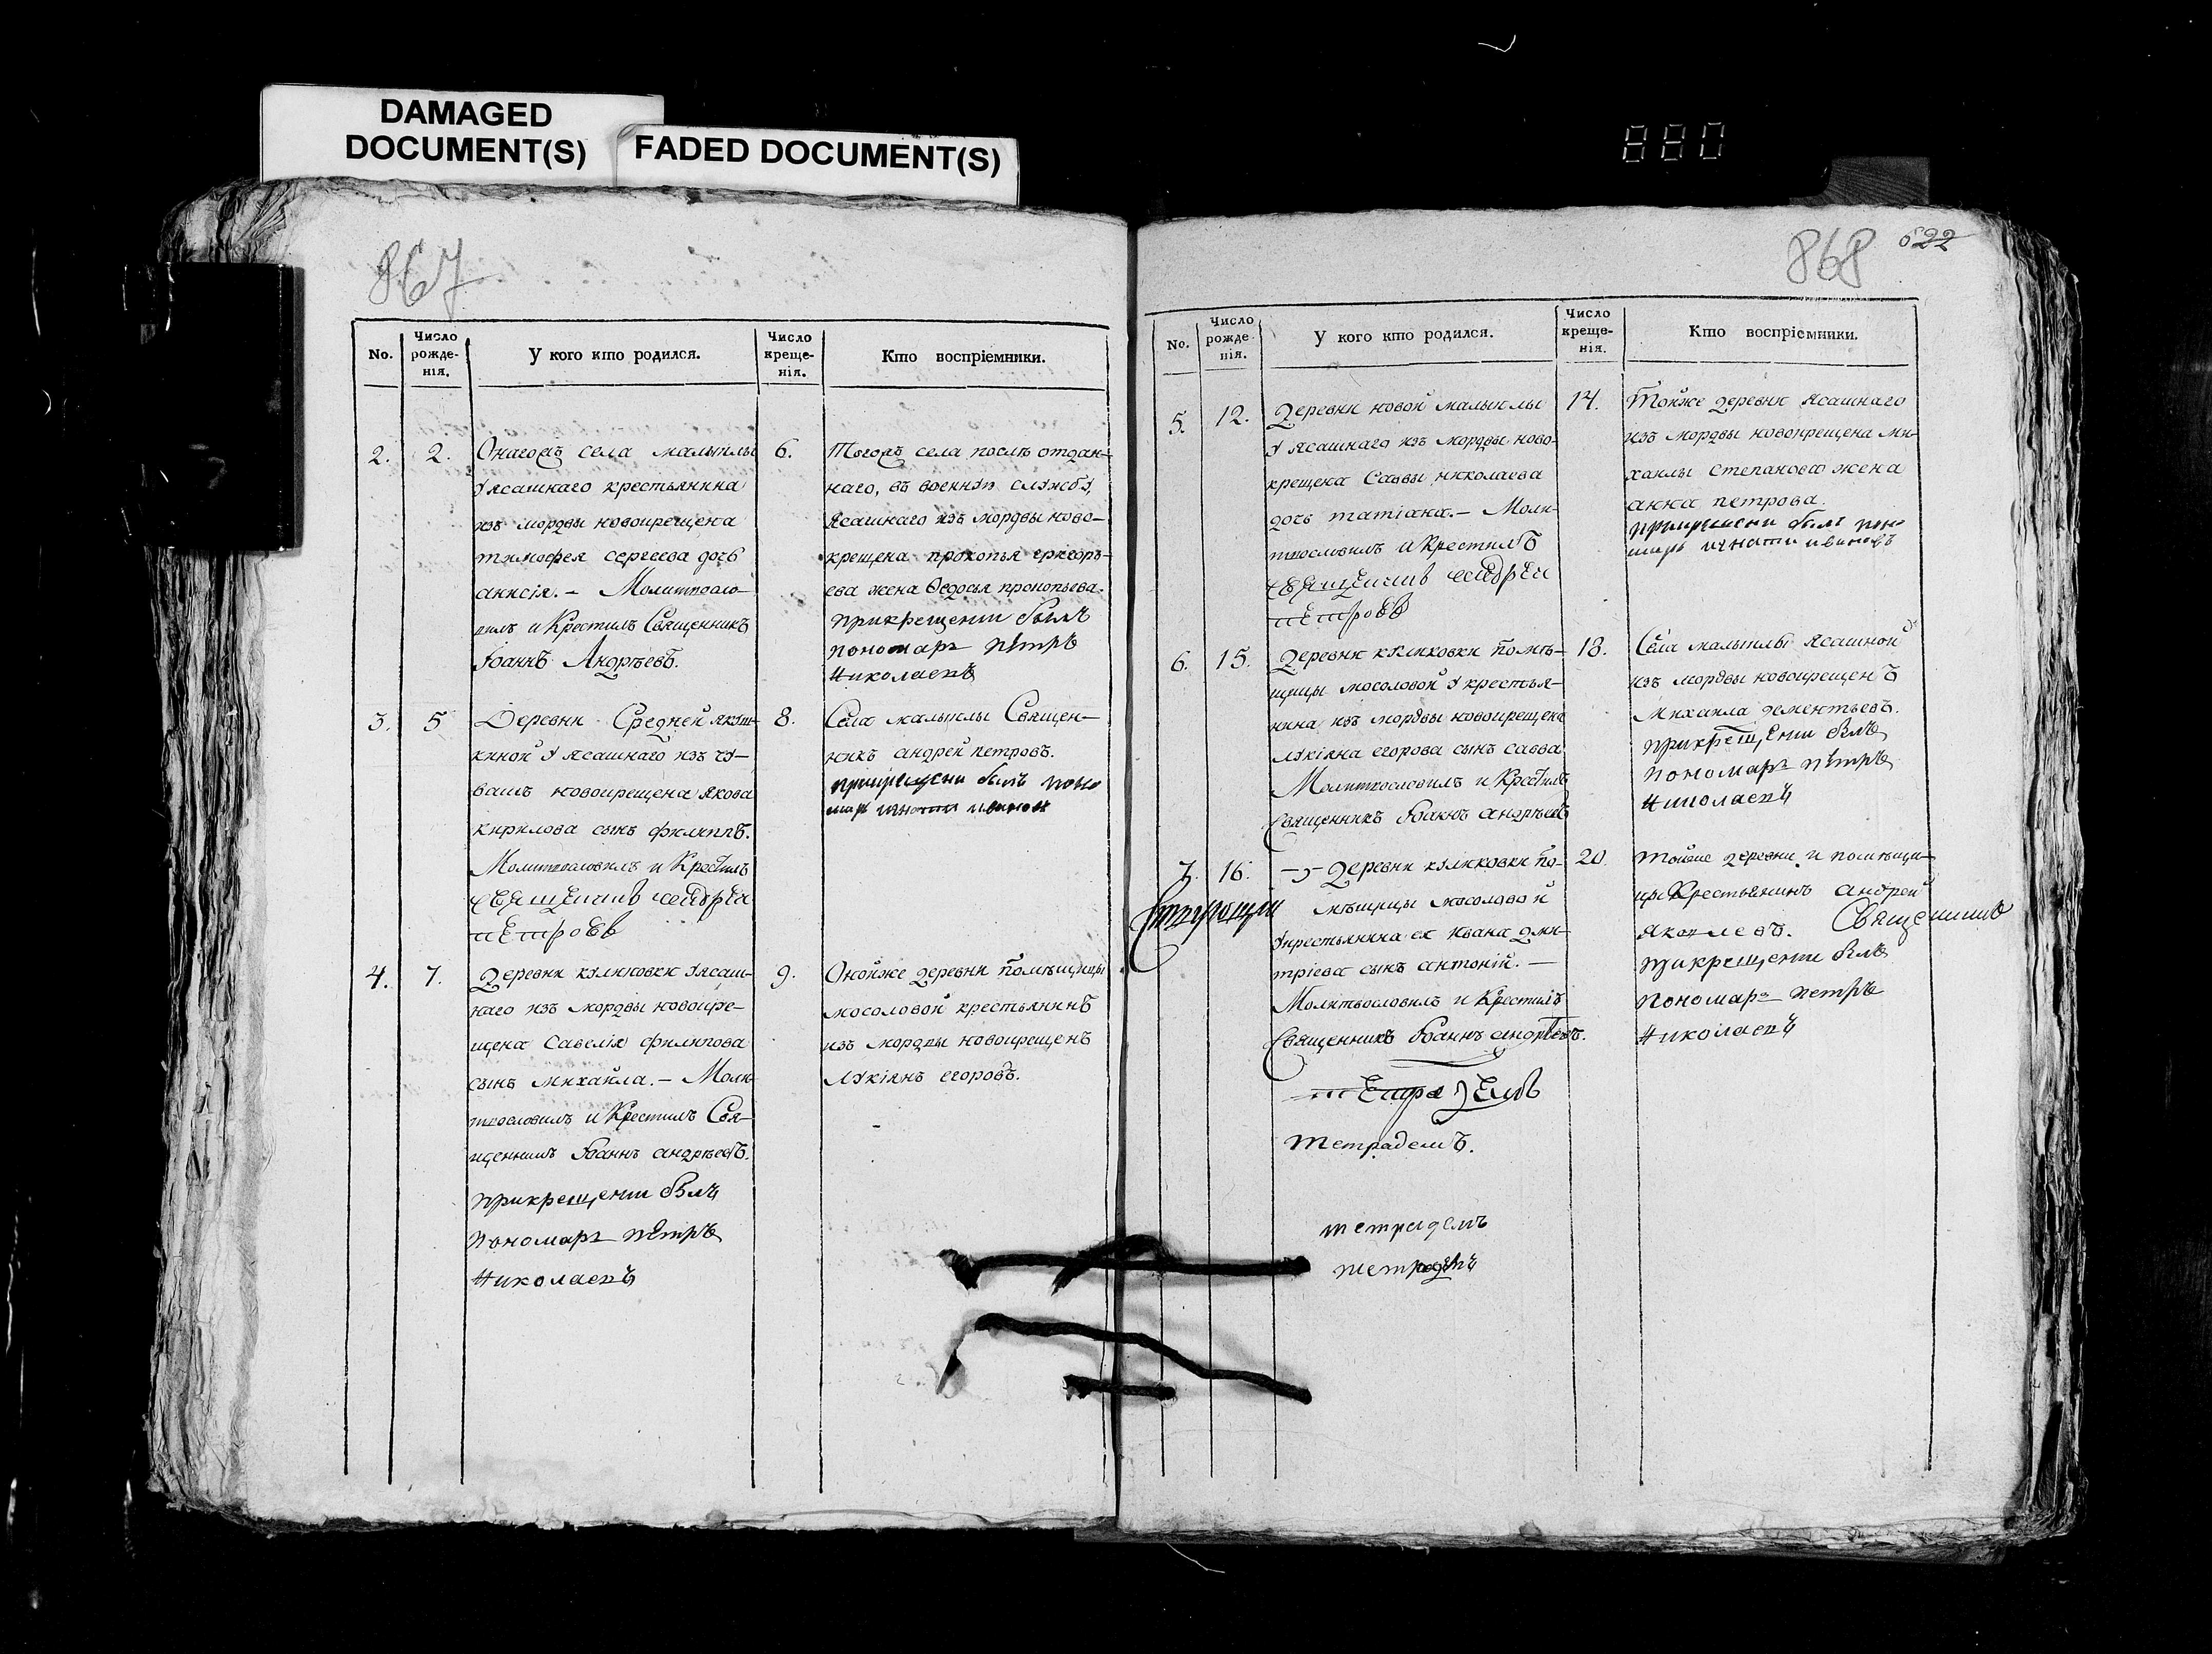 DAMAGED
DOCUMENT(S)
FADED DOCUMENT(S)
880
867
No.
Число рожде- нія.
У кого кто родился.
Число креще- нія.
Кто воспріемники.
2.
2.
Онагожъ села малыклы
у ясашнаго крестьянина
изъ мордвы новокрещена
тимофея сергеева дочь
анисія. – Молитвосло-
вилъ и Крестилъ Священникъ
Іоаннъ Андрѣевъ.
6.
Тогожъ села послѣ отдан-
наго, въ военную службу,
ясашнаго изъ мордвы ново-
крещена прокопья григорь-
ева жена Ѳедосья прокопьева.
прикрещении былъ
пономарь петръ
николаевъ
3.
5
Деревни Средней якуш-
киной у ясашнаго изъ чу-
вашъ новокрещена якова
кирилова сынъ филиппъ.
Молитвословилъ и Крестилъ
священникъ андрей
петровъ
8.
Села малыклы Священ-
никъ андрей петровъ.
прикрещени былъ поно
марь игнати иванов
4.
7.
Деревни куликовки у ясаш-
наго изъ мордвы новокре-
щена Савелія филипова
сынъ михайла. – Моли-
твословилъ и Крестилъ Свя-
щенникъ Іоаннъ андрѣевъ.
прикрещении былъ
пономарь петръ
николаевъ
9.
Онойже деревни помѣщицы
мосоловой крестьянинъ
изъ мордвы новокрещенъ
лукіянъ егоровъ.
868
622
No.
Число рожде- нія.
У кого кто родился.
Число креще- нія.
Кто воспріемники.
5.
12.
Деревни новой малыклы
у ясашнаго изъ мордвы ново-
крещена Саввы николаева
дочь татіана. – Моли-
твословилъ и Крестилъ
священникъ андрей
петровъ
14.
Тойже деревни ясашнаго
изъ мордвы новокрещена ми-
хаилы степанова жена
анна петрова.
прикрещени былъ поно
марь игнати ивановъ
6.
15.
Деревни куликовки помѣ-
щицы мосоловой у крестья-
нина изъ мордвы новокрещена
лукіяна егорова сынъ савва
Молитвословилъ и Крестилъ
Священникъ Іоаннъ андрѣевъ
18.
Села малыклы ясашной
изъ мордвы новокрещенъ
михаила дементьевъ.
прикрещении былъ
пономарь петръ
николаевъ
7.
16.
Деревни куликовки по-
мѣщицы мосоловой
у крестьянина ея ивана дми-
тріева сынъ антоній. –
Молитвословилъ и Крестилъ
Священникъ Іоаннъ андрѣевъ.
20
тойже деревни и помѣщи-
цы Крестьянинъ андрей
яковлевъ. Священникъ
прикрещении былъ
пономарь петръ
николаевъ
тетрадемъ
тетрадемъ.
тетрадемъ